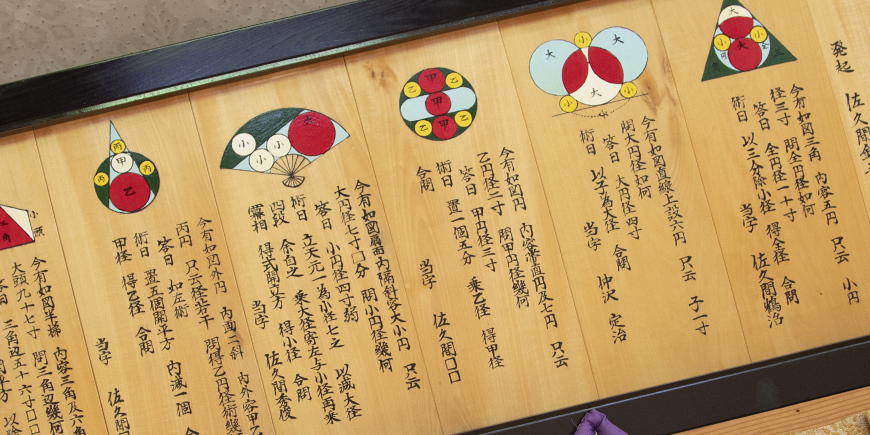 発起 佐久間
大
小
小
大
今有如図三角 内容五円 只云 小円
径三寸 問全円径如何
答曰 全円径一十寸
術曰 以三分除小径 得全径 合問
当字 佐久間鶴治
大
小
大
小
大
小
今有如図直線上設六円 只云 子一寸
問大円径如何
答曰 大円径四寸
術曰 以子為大径 合問
当字 仲沢定治
甲
乙
乙
甲
乙
甲
乙
今有如図円 内容帯直円及七円 只云
乙円径二寸 問甲円径幾何
答曰 甲円径三寸
術曰 置一個五分 乗乙径 得甲径
合問
当字 佐久間□□
大
小
小
小
今有如図扇面内隔斜容大小円 只云
大円径七寸□分 問小円径幾何
答曰 小円径四寸弱
術曰 立天元一為小径七之 以減大径
四段 余自之 乗大径寄左与小径再乗
相 得式開立方 得小径 合問
当字 佐久間秀俊
丙
甲
丙
丙
乙
今有如図外円 内画二斜 内外容甲乙
丙円 只云径若干 問得乙円径術
答曰 如左術
術曰 置五個開平方 内減一個
甲径 得乙径 合問
当字 佐久間
小頭
角
今有如図半梯 内容三角及六角
大頭九十七寸 問三角辺幾何
三角辺五十六寸□□